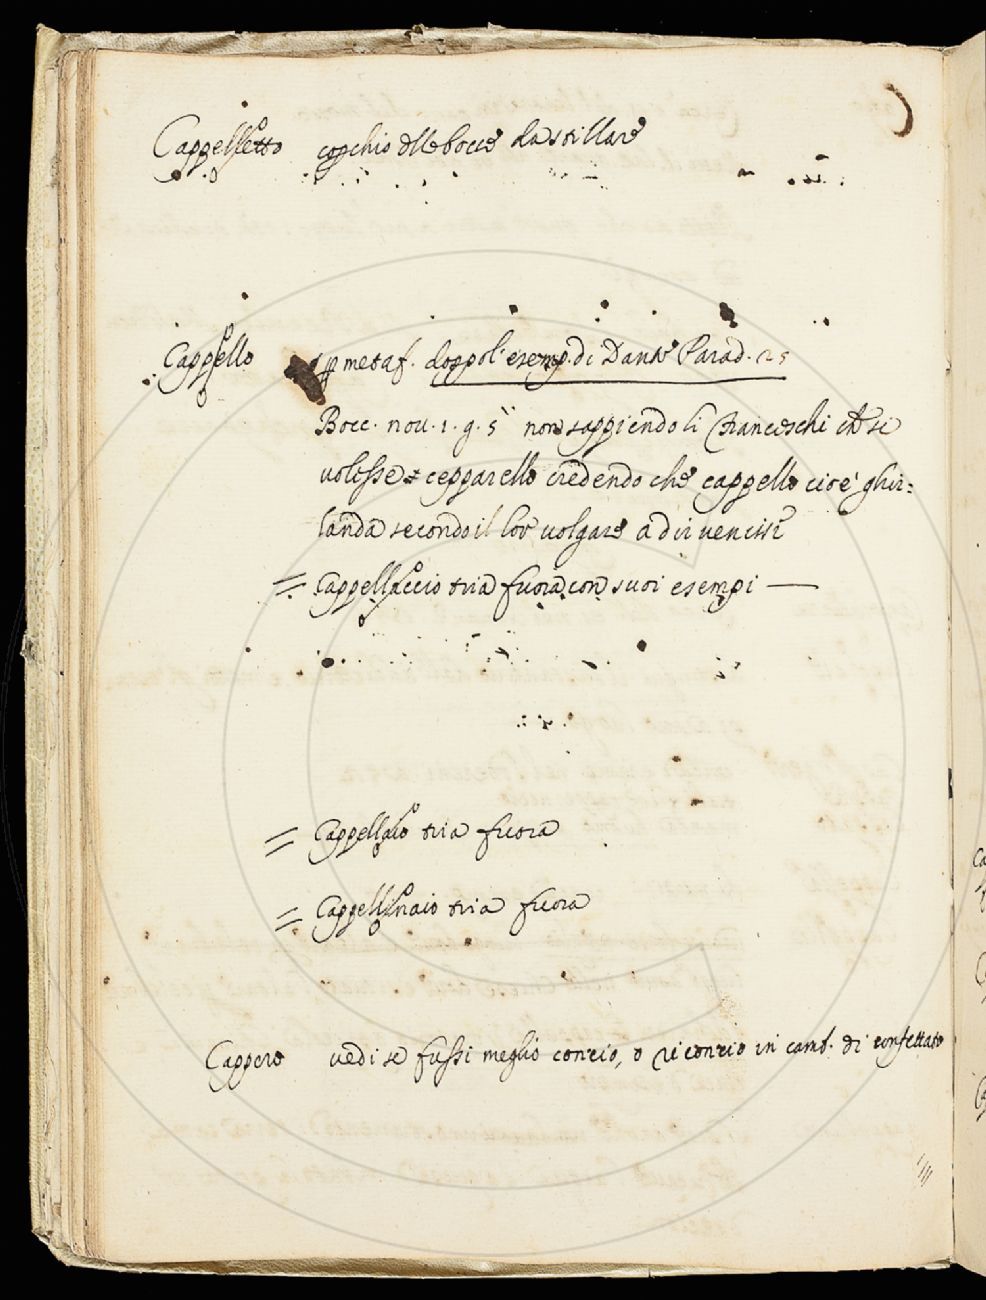 Cappelletto coperchio dlle bocce da stillare
Cappello p metaf. doppo l'esemp. di Dante Parad. 25
Bocc. nov. 1. g. 5 non sappiendo li Franceschi che si
volesse cepparello credendo che cappello cioè ghir=
landa secondo il lor volgare a dir venisse
= Cappellaccio tria fuora con suoi esempi —
= Cappellaio tria fuora
= Cappellinaio tria fuora
Cappero vedi se fussi meglio concio, o riconcio in camb. di confettato